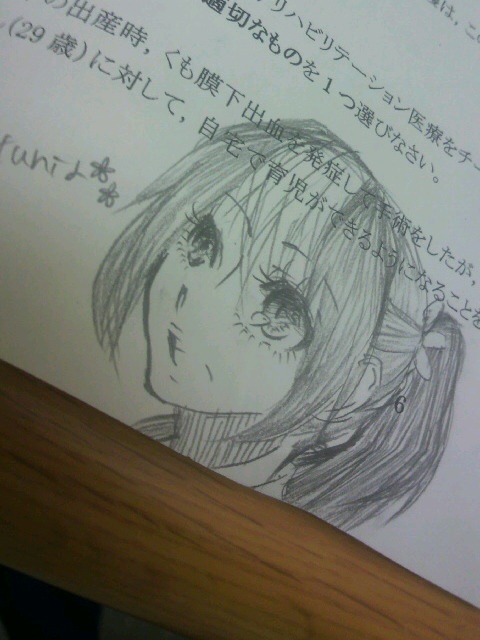 リハビリテーション医療をチー
適切なものを１つ選びなさい。
の出産時，くも膜下出血を発症して手術をしたが，
(29 歳)に対して，自宅で育児ができるようになることを
6